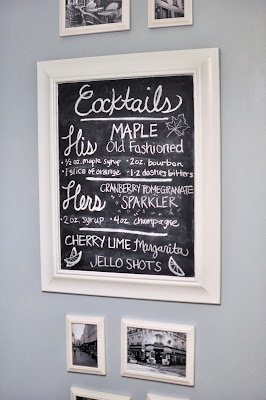 Cocktails
MAPLE
His Old Fashioned
• ½ oz. maple syrup • 2oz. bourbon
• 1 slice of orange • 1-2 dashes bitters
CRANBERRY POMEGRANATE
Hers SPARKLER
• 2 oz. syrup • 4oz. champagne
CHERRY LIME Margarita
JELLO SHOTS